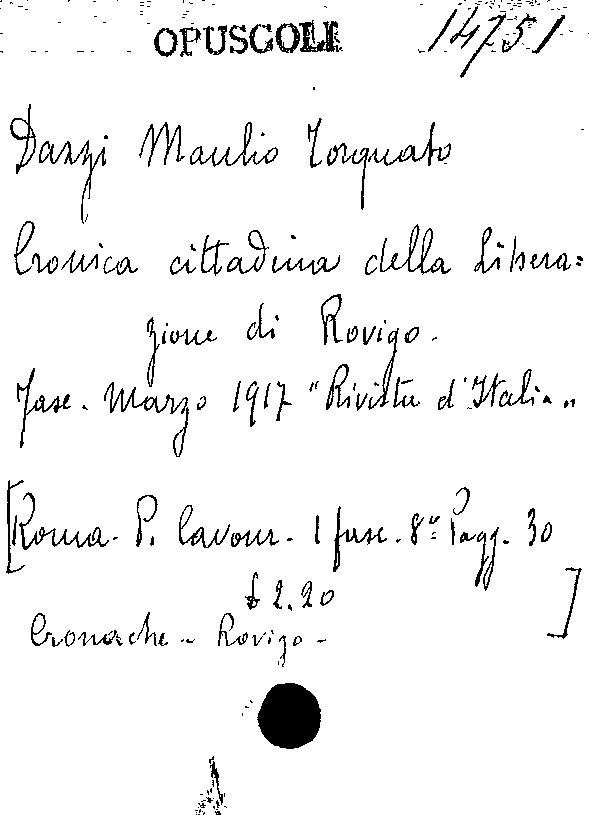 OPUSCOLI 14751
Dazzi Manlio Torquato
Cronica cittadina della Libera=
zione di Rovigo.
Fasc. Marzo 1917 "Rivista d'Italia"
[Roma. P. Cavour. 1 fasc. 8° Pagg. 30
₤ 2.20 ]
Cronache - Rovigo -